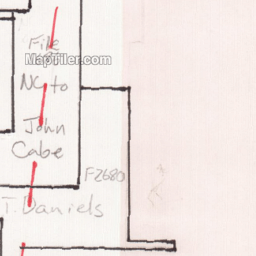 File
MapFiler.com
NC to
John
Cabe
F2680
T. Daniels